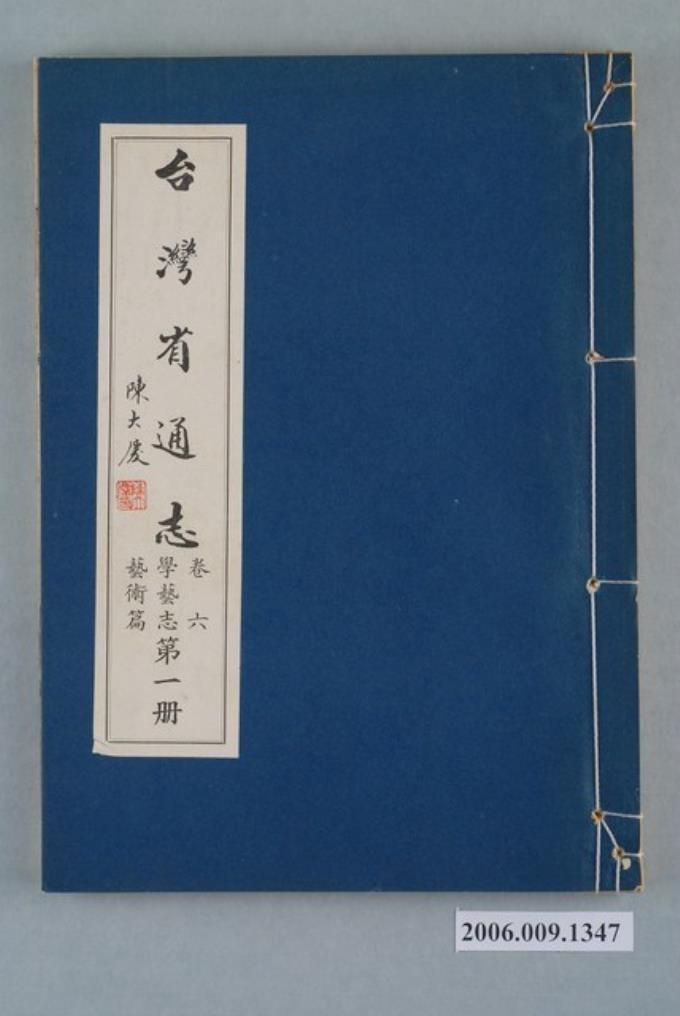 台灣省通志
陳大慶
卷六
學藝志
藝術篇
第一册
2006.009.1347